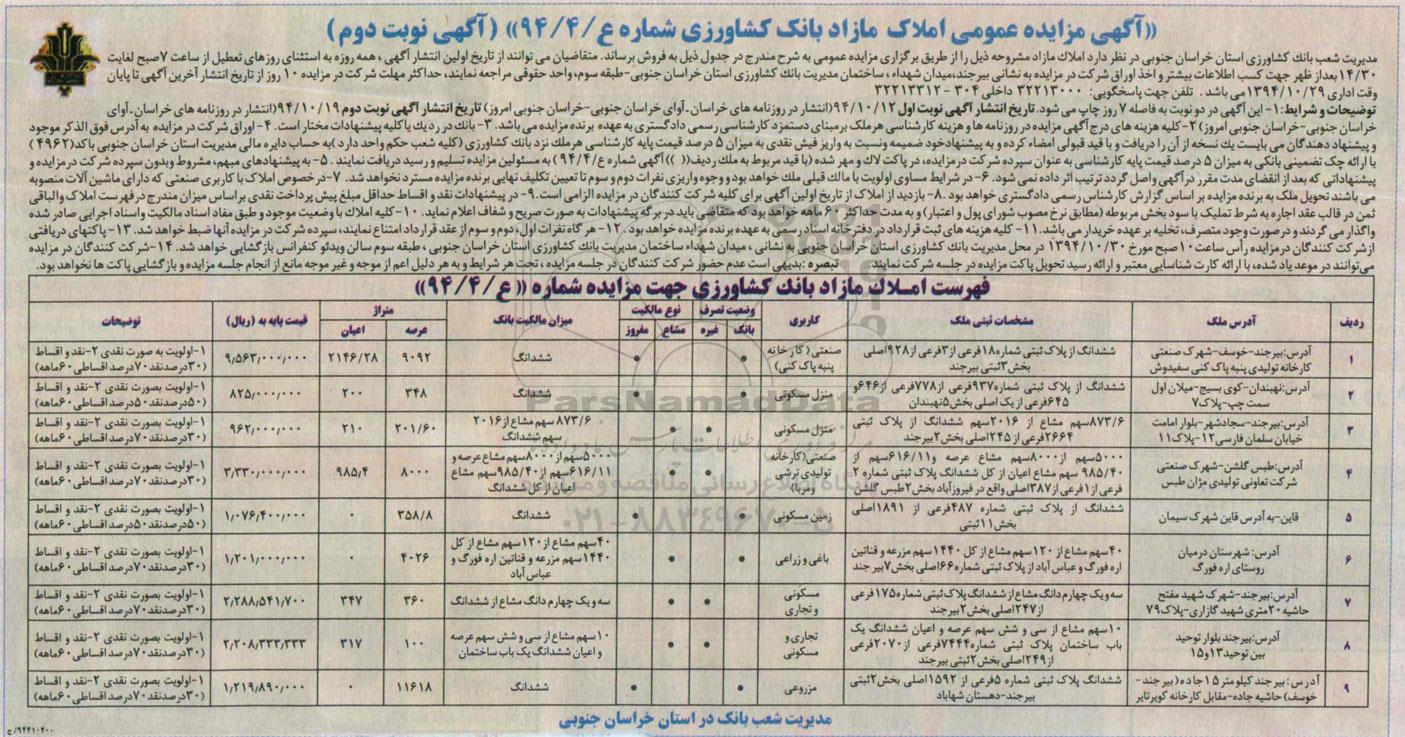 «آگهی مزایده عمومی املاک مازاد بانک کشاورزی شماره ع/۹۴/۴» (آگهی نوبت دوم)
مدیریت شعب بانك کشاورزی استان خراسان جنوبی در نظر دارد املاك مازاد مشروحه ذیل را از طریق برگزاری مزایده عمومی به شرح مندرج در جدول ذیل به فروش برساند. متقاضیان می توانند از تاریخ اولین انتشار آگهی ، همه روزه به استثنای روزهای تعطیل از ساعت ۷صبح لغایت
۱۴/۳۰بعداز ظهر جهت کسب اطلاعات بیشتر و اخذ اوراق شرکت در مزایده به نشانی بیرجند،میدان شهداء ، ساختمان مدیریت بانك کشاورزی استان خراسان جنوبی-طبقه سوم،واحد حقوقی مراجعه نمایند، حداکثر مهلت شرکت در مزایده ۱۰ روز از تاریخ انتشار آخرین آگهی تا پایان
وقت اداری ۱۳۹۴/۱۰/۲۹ می باشد . تلفن جهت پاسخگویی: ۳۲۲۱۳۰۰۰ داخلی ۳۰۴ - ۳۲۲۱۳۳۱۲
توضیحات و شرایط:۱- این آگهی در دو نوبت به فاصله ۷ روز چاپ می شود. تاریخ انتشار آگهی نوبت اول ۹۴/۱۰/۱۲(انتشار در روزنامه های خراسان-آوای خراسان جنوبی-خراسان جنوبی امروز) تاریخ انتشار آگهی نوبت دوم ۹۴/۱۰/۱۹(انتشار در روزنامه های خراسان-آوای
خراسان جنوبی-خراسان جنوبی امروز) ۲-کلیه هزینه های درج آگهی مزایده در روزنامه ها و هزینه کارشناسی هرملك برمبنای دستمزد کارشناسی رسمی دادگستری به عهده برنده مزایده می باشد. ۳- بانك در رد یك یاکلیه پیشنهادات مختار است. ۴- اوراق شرکت در مزایده به آدرس فوق الذکر موجود
و پیشنهاد دهندگان می بایست یك نسخه از آن را دریافت و با قید قبولی امضاء کرده و به پیشنهادخود ضمیمه ونسبت به واریز فیش نقدی به میزان ۵ درصد قیمت پایه کارشناسی هرملك نزد بانك کشاورزی (کلیه شعب حکم واحد دارد )به حساب دایره مالی مدیریت استان خراسان جنوبی باکد(۴۹۶۲)
یا ارائه چك تضمینی بانکی به میزان ۵ درصد قیمت پایه کارشناسی به عنوان سپرده شرکت درمزایده، در پاکت لاك و مهر شده (با قید مربوط به ملك ردیف( ))آگهی شماره ع/۹۴/۴) به مسئولین مزایده تسلیم و رسید دریافت نمایند . ۵- به پیشنهادهای مبهم، مشروط وبدون سپرده شرکت درمزایده و
پیشنهاداتی که بعد از انقضای مدت مقرر درآگهی واصل گردد ترتیب اثر داده نمی شود. ۶- در شرایط مساوی اولویت با مالك قبلی ملك خواهد بود و وجوه واریزی نفرات دوم و سوم تا تعیین تکلیف نهایی برنده مزایده مسترد نخواهد شد. ۷-درخصوص املاك با کاربری صنعتی که دارای ماشین آلات منصوبه
می باشند تحویل ملك به برنده مزایده بر اساس گزارش کارشناس رسمی دادگستری خواهد بود. ۸- بازدید از املاك از تاریخ اولین آگهی برای کلیه شرکت کنندگان در مزایده الزامی است. ۹- در پیشنهادات نقد و اقساط حداقل مبلغ پیش پرداخت نقدی براساس میزان مندرج در فهرست املاك والباقی
ثمن در قالب عقد اجاره به شرط تملیك با سود بخش مربوطه (مطابق نرخ مصوب شورای پول و اعتبار) و به مدت حداکثر ۶۰ ماهه خواهد بود که متقاضی باید در برگه پیشنهادات به صورت صریح و شفاف اعلام نماید. ۱۰- کلیه املاك با وضعیت موجود و طبق مفاد اسناد مالکیت و اسناد اجرایی صادر شده
واگذار می گردند و در صورت وجود متصرف، تخلیه بر عهده خریدار می باشد. ۱۱- کلیه هزینه های ثبت قرارداد در دفترخانه اسناد رسمی به عهده برنده مزایده خواهد بود. ۱۲- هر گاه نفرات اول، دوم و سوم از عقد قرارداد امتناع نمایند، سپرده شرکت در مزایده آنها ضبط خواهد شد. ۱۳- پاکتهای دریافتی
از شرکت کنندگان در مزایده رأس ساعت ۱۰ صبح مورخ ۱۳۹۴/۱۰/۳۰ در محل مدیریت بانك کشاورزی استان خراسان جنوبی به نشانی ، میدان شهداء ساختمان مدیریت بانك کشاورزی استان خراسان جنوبی ، طبقه سوم سالن ویدئو کنفرانس بازگشایی خواهد شد. ۱۴-شرکت کنندگان در مزایده
می توانند در موعد یاد شده، با ارائه کارت شناسایی معتبر و ارائه رسید تحویل پاکت مزایده در جلسه شرکت نمایند. تبصره :بدیهی است عدم حضور شرکت کنندگان در جلسه مزایده ، تحت هر شرایط و به هر دلیل اعم از موجه و غیر موجه مانع از انجام جلسه مزایده و بازگشایی پاکت ها نخواهد بود.
فهرست املاک مازاد بانک کشاورزی جهت مزایده شماره «ع/۹۴/۴»
ردیف آدرس ملک مشخصات ثبتی ملک کاربری وضعیت تصرف نوع مالکیت میزان مالکیت بانک متراژ قیمت پایه به (ریال) توضیحات
بانک غیره مشاع مفروز عرصه اعیان
۱ آدرس:بیرجند-خوسف-شهرک صنعتی کارخانه تولیدی پنبه پاک کنی سفیدوش ششدانگ از پلاک ثبتی شماره۱۸فرعی از۳فرعی از۹۲۸اصلی بخش۳ثبتی بیرجند صنعتی(کارخانه پنبه پاک کنی) • • ششدانگ ۹۰۹۲ ۲۱۴۶/۲۸ ۹/۵۶۳/۰۰۰/۰۰۰ ۱-اولویت به صورت نقدی ۲-نقد و اقساط (۳۰درصدنقد۷۰درصد اقساطی۶۰ماهه)
۲ آدرس:نهبندان-کوی بسیج-میلان اول سمت چپ-پلاک۷ ششدانگ از پلاک ثبتی شماره۹۳۷فرعی از۷۷۸فرعی از۶۴۶و ۶۴۵فرعی ازیک اصلی بخش۵نهبندان منزل مسکونی • • ششدانگ ۳۴۸ ۲۰۰ ۸۲۵/۰۰۰/۰۰۰ ۱-اولویت بصورت نقدی ۲-نقد و اقساط (۵۰درصدنقد۵۰درصداقساطی۶۰ماهه)
۳ آدرس:بیرجند-سجادشهر-بلوار امامت خیابان سلمان فارسی۱۲-پلاک۱۱ ۸۷۳/۶سهم مشاع از ۲۰۱۶سهم ششدانگ از پلاک ثبتی ۲۶۶۴فرعی از۲۴۵اصلی بخش۲بیرجند منزل مسکونی • • ۸۷۳/۶ سهم مشاع از۲۰۱۶ سهم ششدانگ ۲۰۱/۶۰ ۲۱۰ ۹۶۲/۰۰۰/۰۰۰ ۱-اولویت بصورت نقدی ۲-نقد و اقساط (۳۰درصدنقد۷۰درصد اقساطی۶۰ماهه)
۴ آدرس:طبس گلشن-شهرک صنعتی شرکت تعاونی تولیدی مژان طبس ۵۰۰۰سهم از۸۰۰۰سهم مشاع عرصه و۶۱۶/۱۱سهم از ۹۸۵/۴۰ سهم مشاع اعیان از کل ششدانگ پلاک ثبتی شماره ۲ فرعی از۱فرعی از۳۸۷اصلی واقع در فیروزآباد بخش۲طبس گلشن صنعتی(کارخانه تولیدی ترشی ومربا) • • ۵۰۰۰سهم از۸۰۰۰سهم مشاع عرصه و ۶۱۶/۱۱سهم از۹۸۵/۴۰سهم مشاع اعیان از کل ششدانگ ۸۰۰۰ ۹۸۵/۴ ۳/۳۳۰/۰۰۰/۰۰۰ ۱-اولویت بصورت نقدی ۲-نقد و اقساط (۳۰درصدنقد۷۰درصد اقساطی۶۰ماهه)
۵ قاین-به آدرس قاین شهرک سیمان ششدانگ از پلاک ثبتی شماره ۴۸۷فرعی از ۱۸۹۱اصلی بخش۱۱ثبتی زمین مسکونی • • ششدانگ ۳۵۸/۸ ۰ ۱/۰۷۶/۴۰۰/۰۰۰ ۱-اولویت بصورت نقدی ۲-نقد و اقساط (۵۰درصدنقد۵۰درصد اقساطی۶۰ماهه)
۶ آدرس: شهرستان درمیان روستای اره فورگ ۴۰سهم مشاع از ۱۲۰سهم مشاع از کل ۱۴۴۰سهم مزرعه و قناتین اره فورگ و عباس آباد از پلاک ثبتی شماره۶۶اصلی بخش۷بیرجند باغی و زراعی • • ۴۰سهم مشاع از۱۲۰سهم مشاع از کل ۱۴۴۰سهم مزرعه و قناتین اره فورگ و عباس آباد ۴۰۲۶ ۰ ۱/۲۰۱/۰۰۰/۰۰۰ ۱-اولویت بصورت نقدی ۲-نقد و اقساط (۳۰درصدنقد۷۰درصد اقساطی۶۰ماهه)
۷ آدرس:بیرجند-شهرک شهید مفتح حاشیه۲۰متری شهید گازاری-پلاک۷۹ سه ویک چهارم دانگ مشاع از ششدانگ پلاک ثبتی شماره۱۷۵فرعی از۲۴۷اصلی بخش۲بیرجند مسکونی و تجاری • • سه ویک چهارم دانگ مشاع از ششدانگ ۳۶۰ ۳۴۷ ۲/۲۸۸/۵۴۱/۷۰۰ ۱-اولویت بصورت نقدی ۲-نقد و اقساط (۳۰درصدنقد۷۰درصداقساطی۶۰ماهه)
۸ آدرس:بیرجند بلوار توحید بین توحید۱۳و۱۵ ۱۰سهم مشاع از سی و شش سهم عرصه و اعیان ششدانگ یک باب ساختمان پلاک ثبتی شماره۷۴۴۴فرعی از۲۰۷۰فرعی از۲۴۹اصلی بخش۲ثبتی بیرجند تجاری و مسکونی • • ۱۰سهم مشاع از سی و شش سهم عرصه و اعیان ششدانگ یک باب ساختمان ۱۰۰ ۳۱۷ ۲/۲۰۸/۳۳۳/۳۳۳ ۱-اولویت بصورت نقدی ۲-نقد و اقساط (۳۰درصدنقد۷۰درصد اقساطی۶۰ماهه)
۹ آدرس:بیرجند کیلومتر۱۵جاده(بیرجند-خوسف)حاشیه جاده-مقابل کارخانه کویرتایر ششدانگ پلاک ثبتی شماره ۵فرعی از ۱۵۹۲اصلی بخش۲ثبتی بیرجند-دهستان شهاباد مزروعی • • ششدانگ ۱۱۶۱۸ ۰ ۱/۲۱۹/۸۹۰/۰۰۰ ۱-اولویت بصورت نقدی ۲-نقد و اقساط (۳۰درصدنقد۷۰درصد اقساطی۶۰ماهه)
مدیریت شعب بانک در استان خراسان جنوبی
۹۴۴۱۰۴۰۰/ح
ParsNamadData
پایگاه اطلاع رسانی مناقصه و مزایده
۰۲۱-۸۸۳۴۹۶۷۰-۵